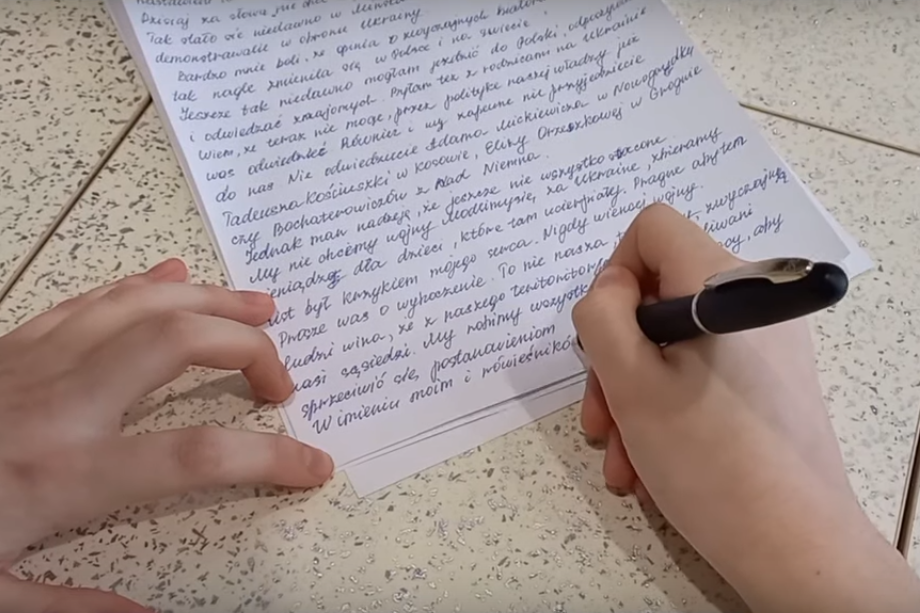 Dzisiaj za słowa „nie
Tak stało się niedawno w
demonstrowali w obronie Ukrainy
Bardzo mnie boli, że opinia o zwyczajnych
tak nagle zmieniła się w Polsce i na świecie.
Jeszcze tak niedawno mogłam jeździć do Polski, odpoczywać
i odwiedzać znajomych. Byłam też z rodzicami na Ukrainie
Wiem, że teraz nie mogę, przez politykę naszej władzy, już
was odwiedzić. Również i wy zapewne nie przyjedziecie
do nas. Nie odwiedzicie Adama Mickiewicza w Nowogródku,
Tadeusza Kościuszki w Kosowie, Elizy Orzeszkowej w Grodnie
czy Bochatorowiczów z Nad Niemna.
Jednak mam nadzieję, że jeszcze nie wszystko stracone.
My nie chcemy wojny. Modlimy się, za Ukrainę, zbieramy
pieniądze dla dzieci, które tam ucierpiały. Pragnę aby ten
list był krzykiem mojego serca. Nigdy więcej wojny.
Proszę was o wybaczenie. To nie nasza, zwyczajnych
ludzi wina, że z naszego terytorium
nasi sąsiedzi. My robimy wszystko aby
sprzeciwić się, postanowieniom
W imieniu moim i rówieśników